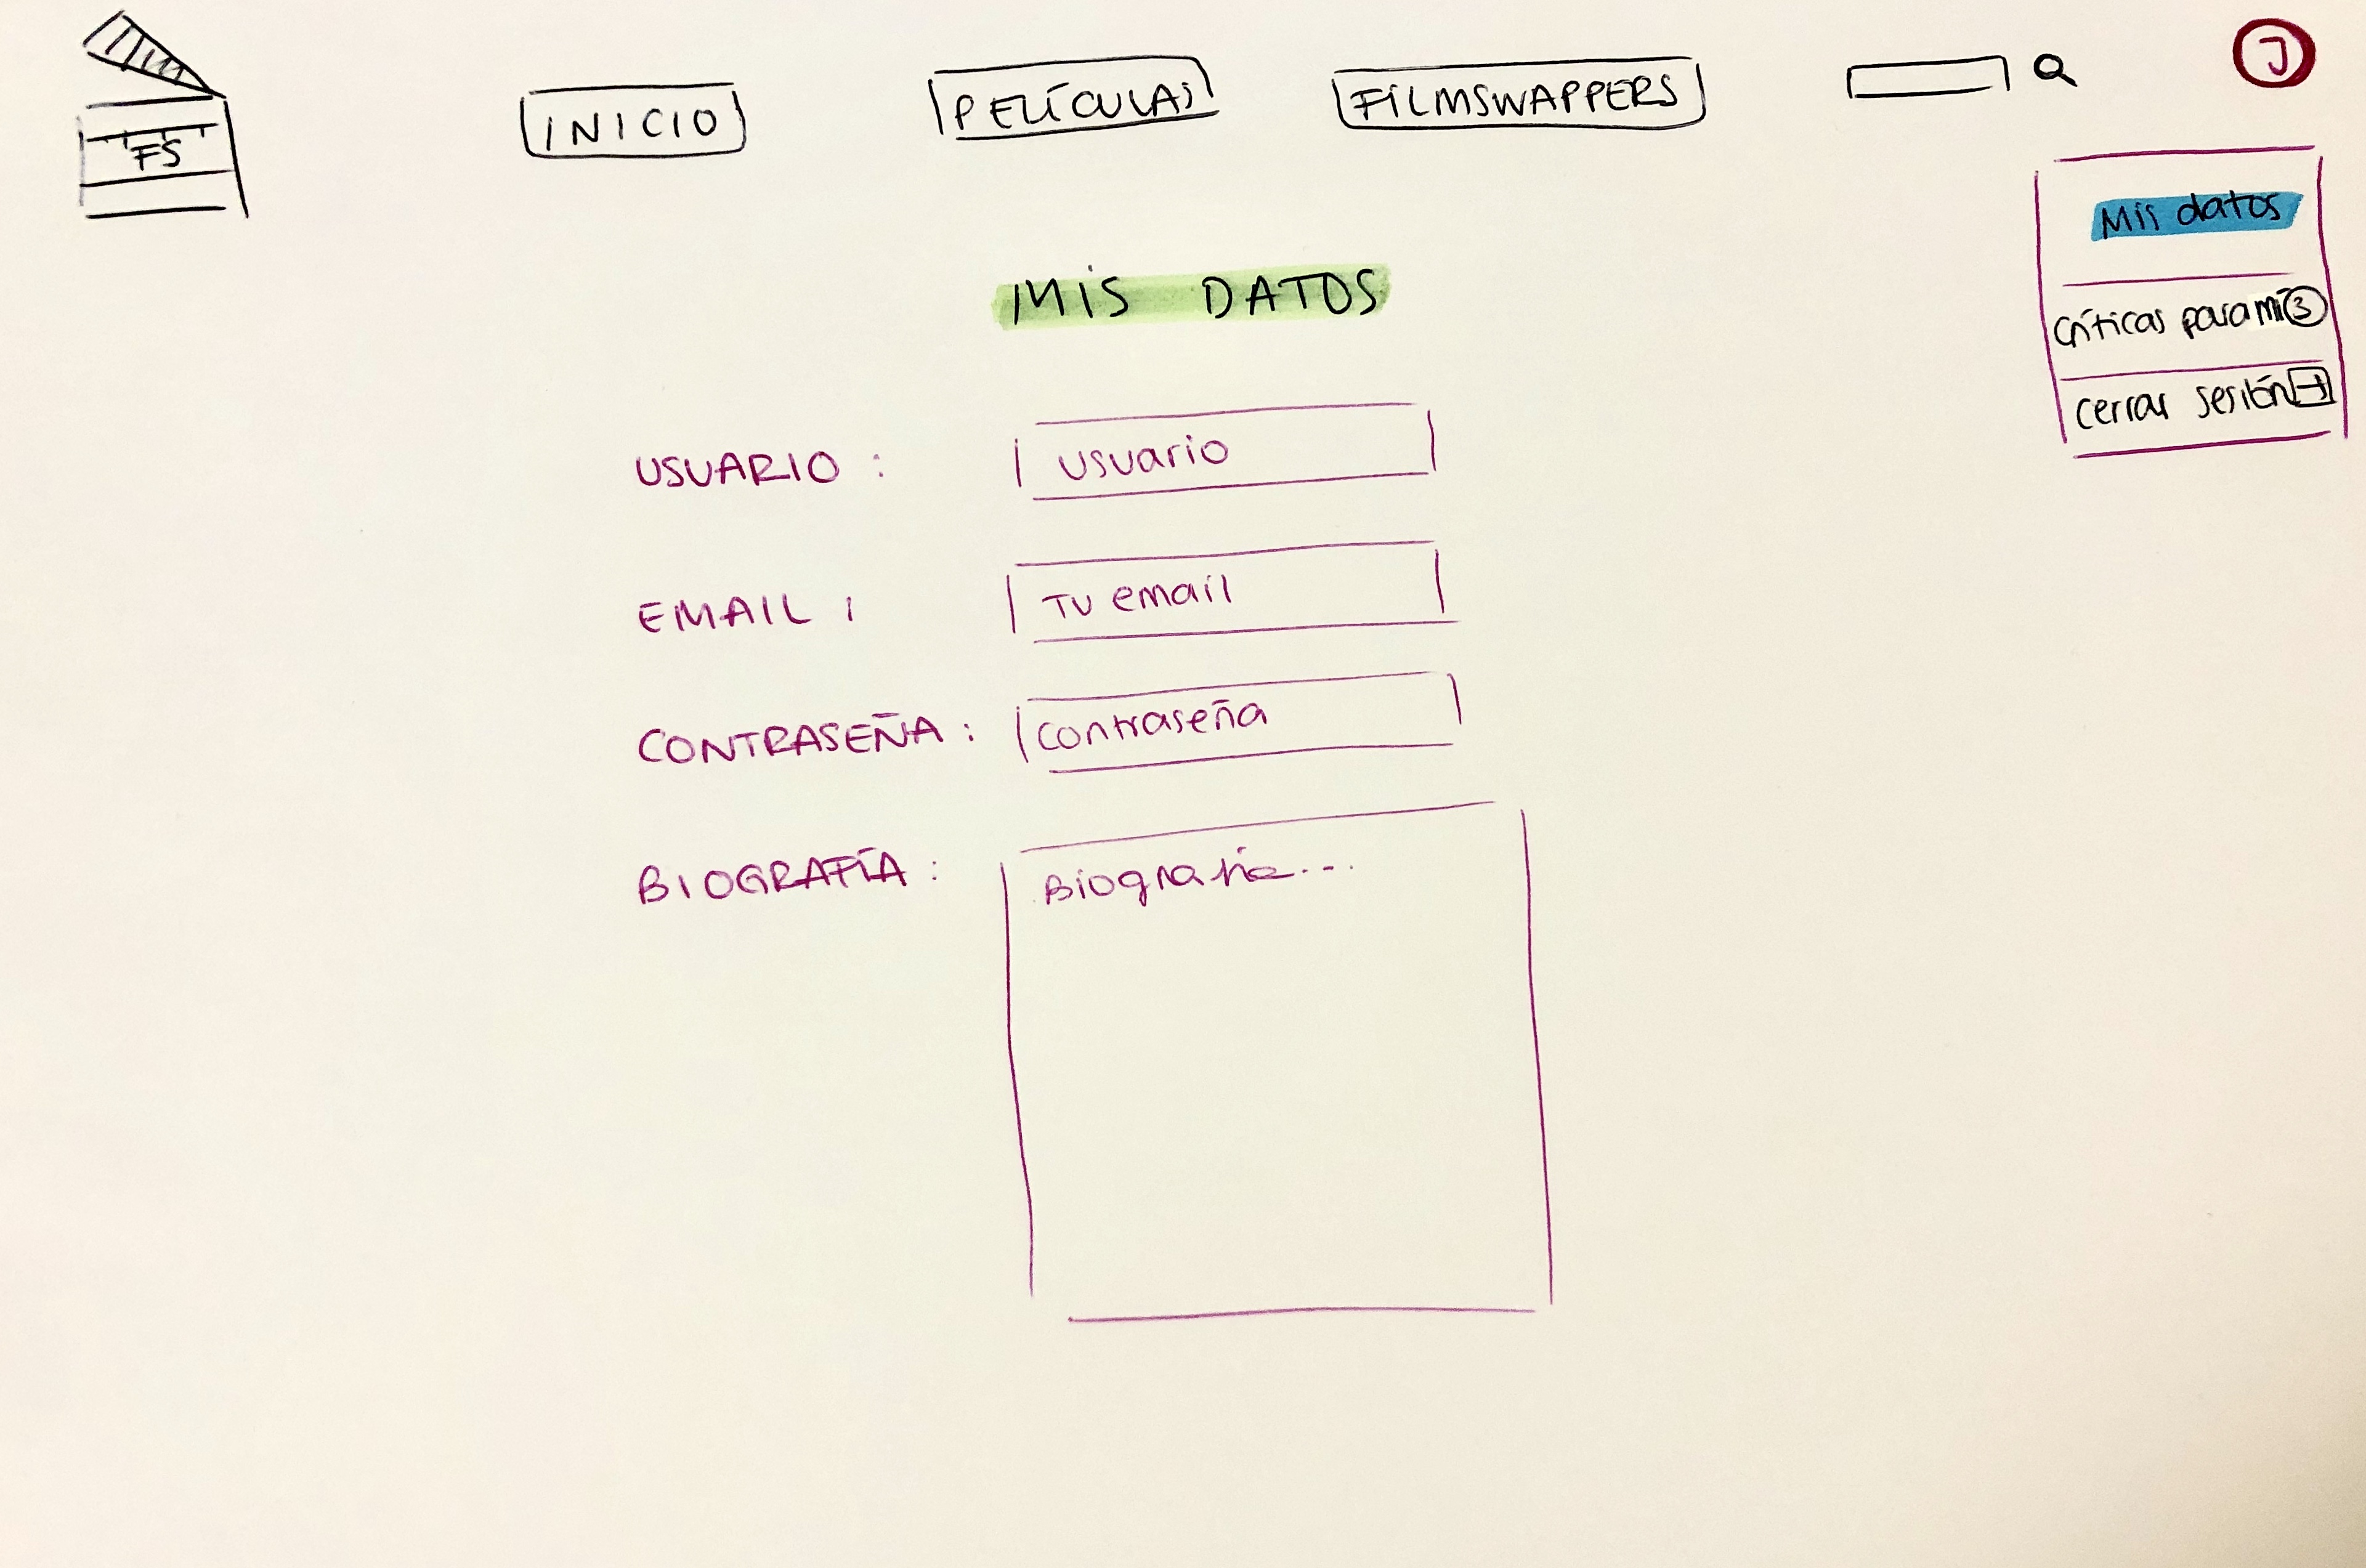 FS
INICIO
PELÍCULAS
FILMSWAPPERS
J
Mis datos
Críticas para mí 3
Cerrar sesión
MIS DATOS
USUARIO : usuario
EMAIL : Tu email
CONTRASEÑA : contraseña
BIOGRAFÍA : Biografía...